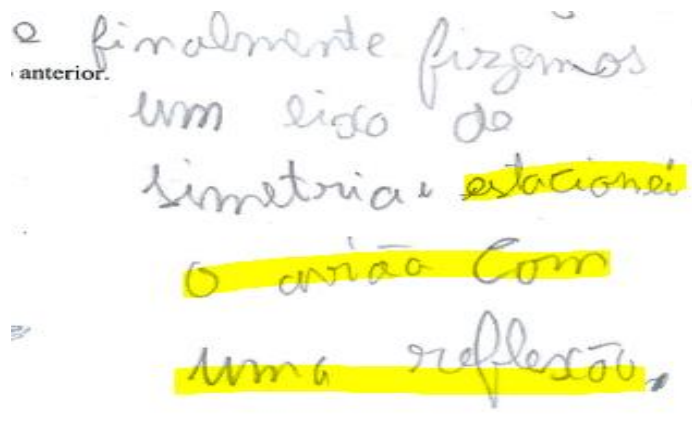 e finalmente fizemos
anterior.
um eixo de
simetria e estacionei
o avião com
uma reflexão.